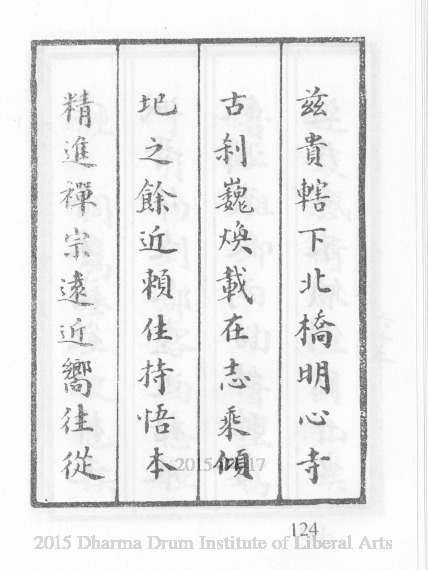 茲貴轄下北橋明心寺
古刹巍煥載在志乘傾
圮之餘近賴住持悟本
精進禪宗遠近嚮往從
124
2015 Dharma Drum Institute of Liberal Arts